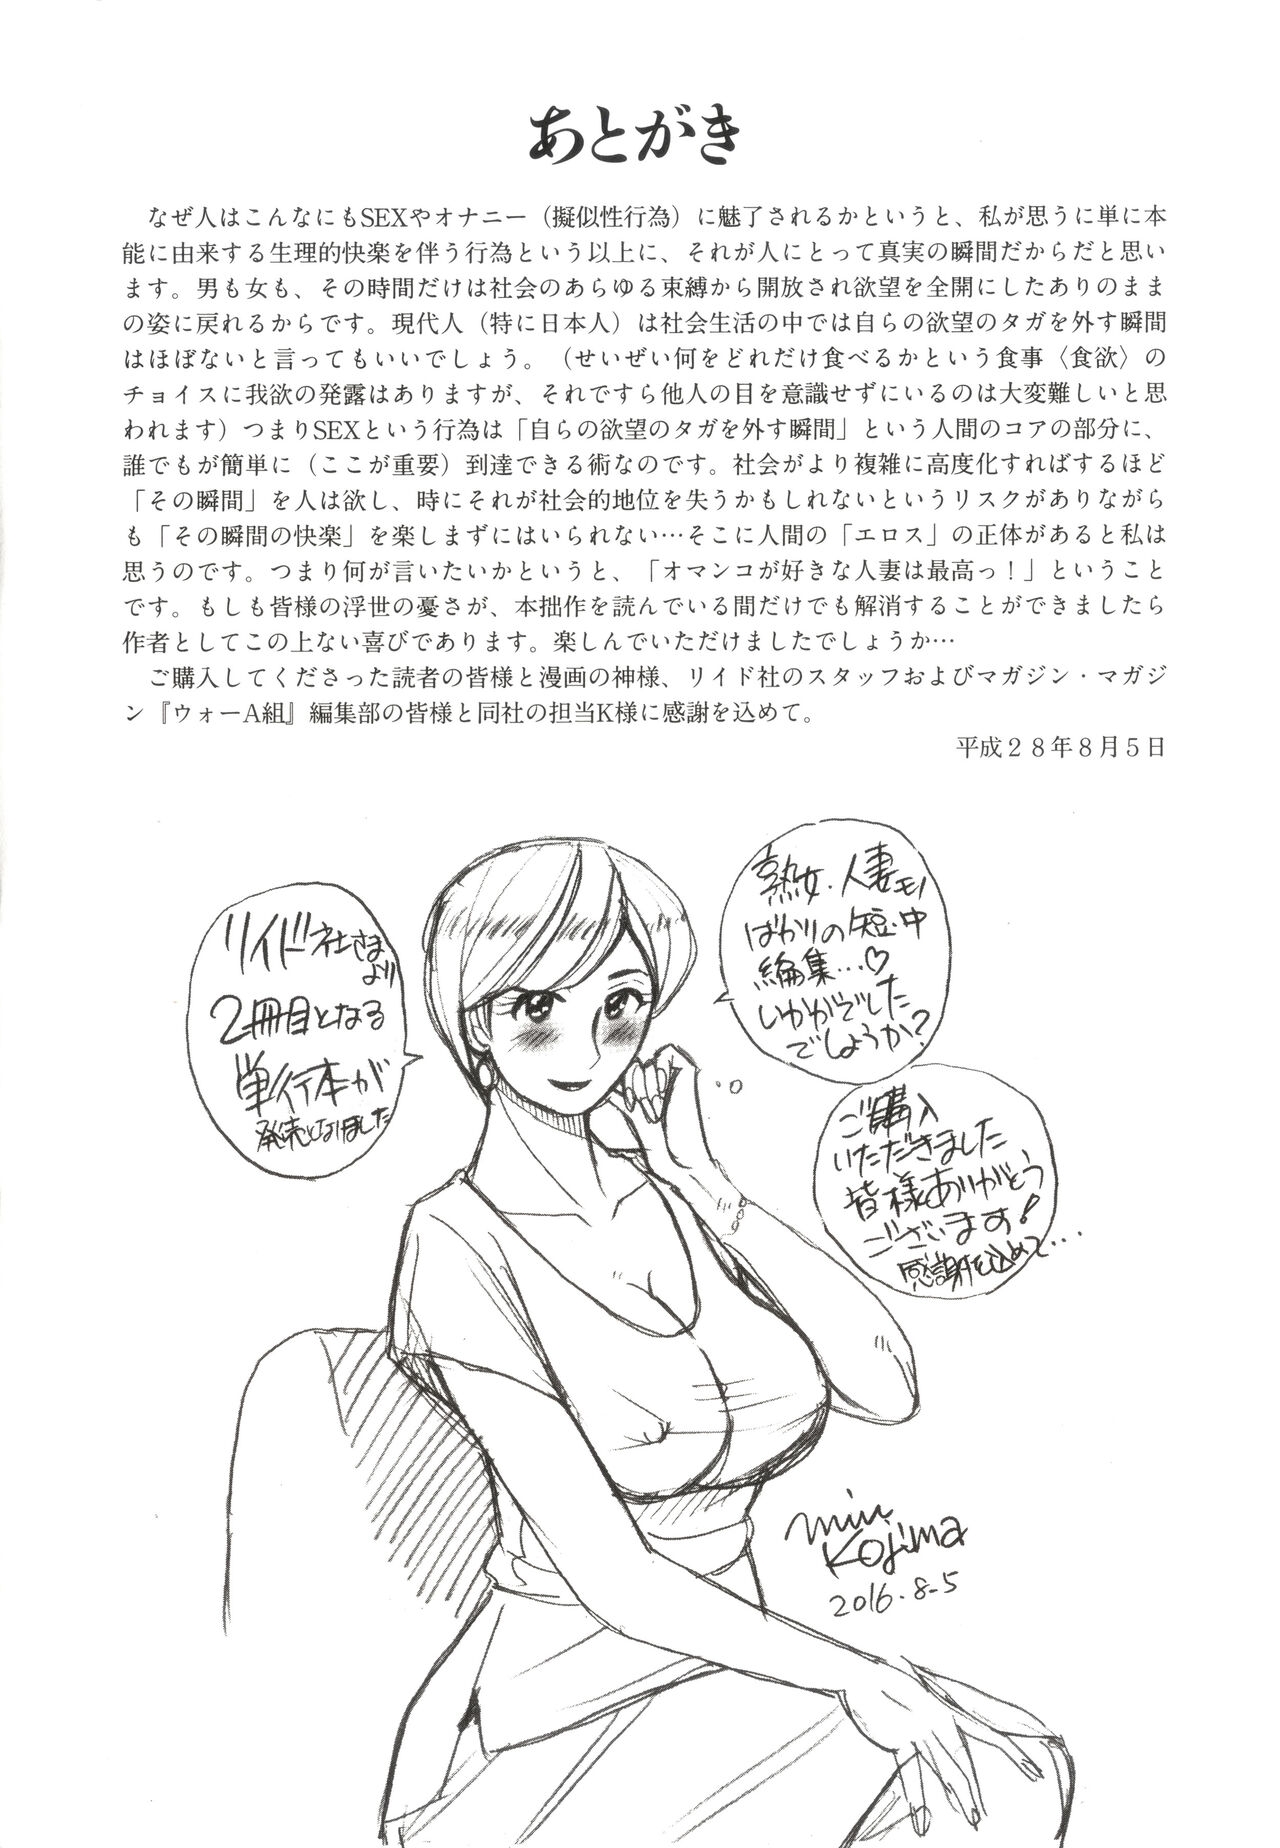 あとがき
　なぜ人はこんなにもSEXやオナニー（擬似性行為）に魅了されるかというと、私が思うに単に本
能に由来する生理的快楽を伴う行為という以上に、それが人にとって真実の瞬間だからだと思い
ます。男も女も、その時間だけは社会のあらゆる束縛から開放され欲望を全開にしたありのまま
の姿に戻れるからです。現代人（特に日本人）は社会生活の中では自らの欲望のタガを外す瞬間
はほぼないと言ってもいいでしょう。（せいぜい何をどれだけ食べるかという食事〈食欲〉の
チョイスに我欲の発露はありますが、それですら他人の目を意識せずにいるのは大変難しいと思
われます）つまりSEXという行為は「自らの欲望のタガを外す瞬間」という人間のコアの部分に、
誰でもが簡単に（ここが重要）到達できる術なのです。社会がより複雑に高度化すればするほど
「その瞬間」を人は欲し、時にそれが社会的地位を失うかもしれないというリスクがありながら
も「その瞬間の快楽」を楽しまずにはいられない…そこに人間の「エロス」の正体があると私は
思うのです。つまり何が言いたいかというと、「オマンコが好きな人妻は最高っ！」ということ
です。もしも皆様の浮世の憂さが、本拙作を読んでいる間だけでも解消することができましたら
作者としてこの上ない喜びであります。楽しんでいただけましたでしょうか…
　ご購入してくださった読者の皆様と漫画の神様、リイド社のスタッフおよびマガジン・マガジ
ン『ウォーA組』編集部の皆様と同社の担当K様に感謝を込めて。
平成２８年８月５日
リイド社さま
より
2冊目となる
単行本が
発売となりました
熟女・人妻モノ
ばかりの短・中
編集…♡
いかがでした
でしょうか?
ご購入
いただきました
皆様ありがとう
ございます!
感謝を込めて…
miu
Kojima
2016.8-5